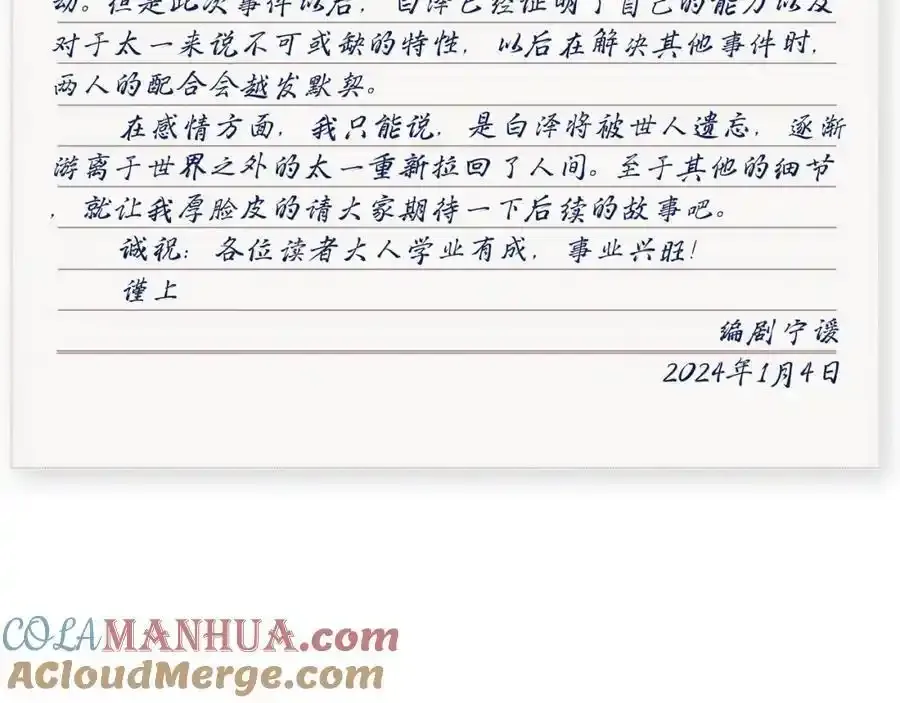 动。但是此次事件以后，白泽已经证明了自己的能力以及
对于太一来说不可或缺的特性，以后在解决其他事件时，
两人的配合会越发默契。
在感情方面，我只能说，是白泽将被世人遗忘，逐渐
游离于世界之外的太一重新拉回了人间。至于其他的细节
，就让我厚脸皮的请大家期待一下后续的故事吧。
诚祝：各位读者大人学业有成，事业兴旺！
谨上
编剧宁谖
2024年1月4日
COLAMANHUA.com
ACloudMerge.com